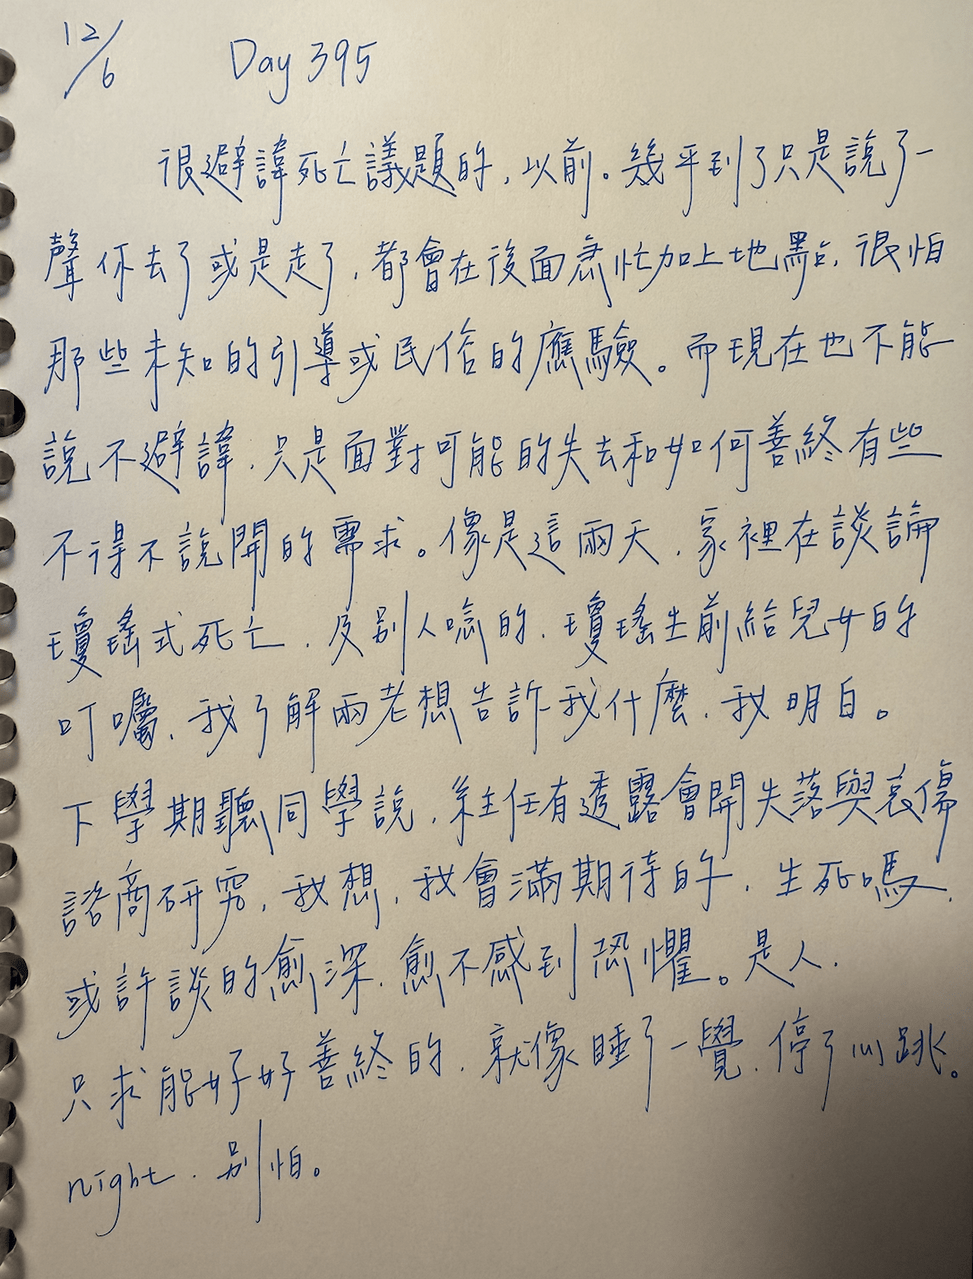 12/6 Day 395
很避諱死亡議題的,以前。幾乎到了只是說了一
聲你去了或是走了,都會在後面慌忙加上地點,很怕
那些未知的引導或民俗的應驗。而現在也不能
說不避諱,只是面對可能的失去和如何善終有些
不得不說開的需求。像是這兩天,家裡在談論
瓊瑤式死亡,及別人唸的,瓊瑤生前給兒女的
叮囑,我了解兩老想告訴我什麼,我明白。
下學期聽同學說,系主任有透露會開失落與哀傷
諮商研究,我想,我會滿期待的,生死嗎,
或許談的愈深,愈不感到恐懼。是人,
只求能好好善終的,就像睡了一覺,停了心跳。
night,別怕。